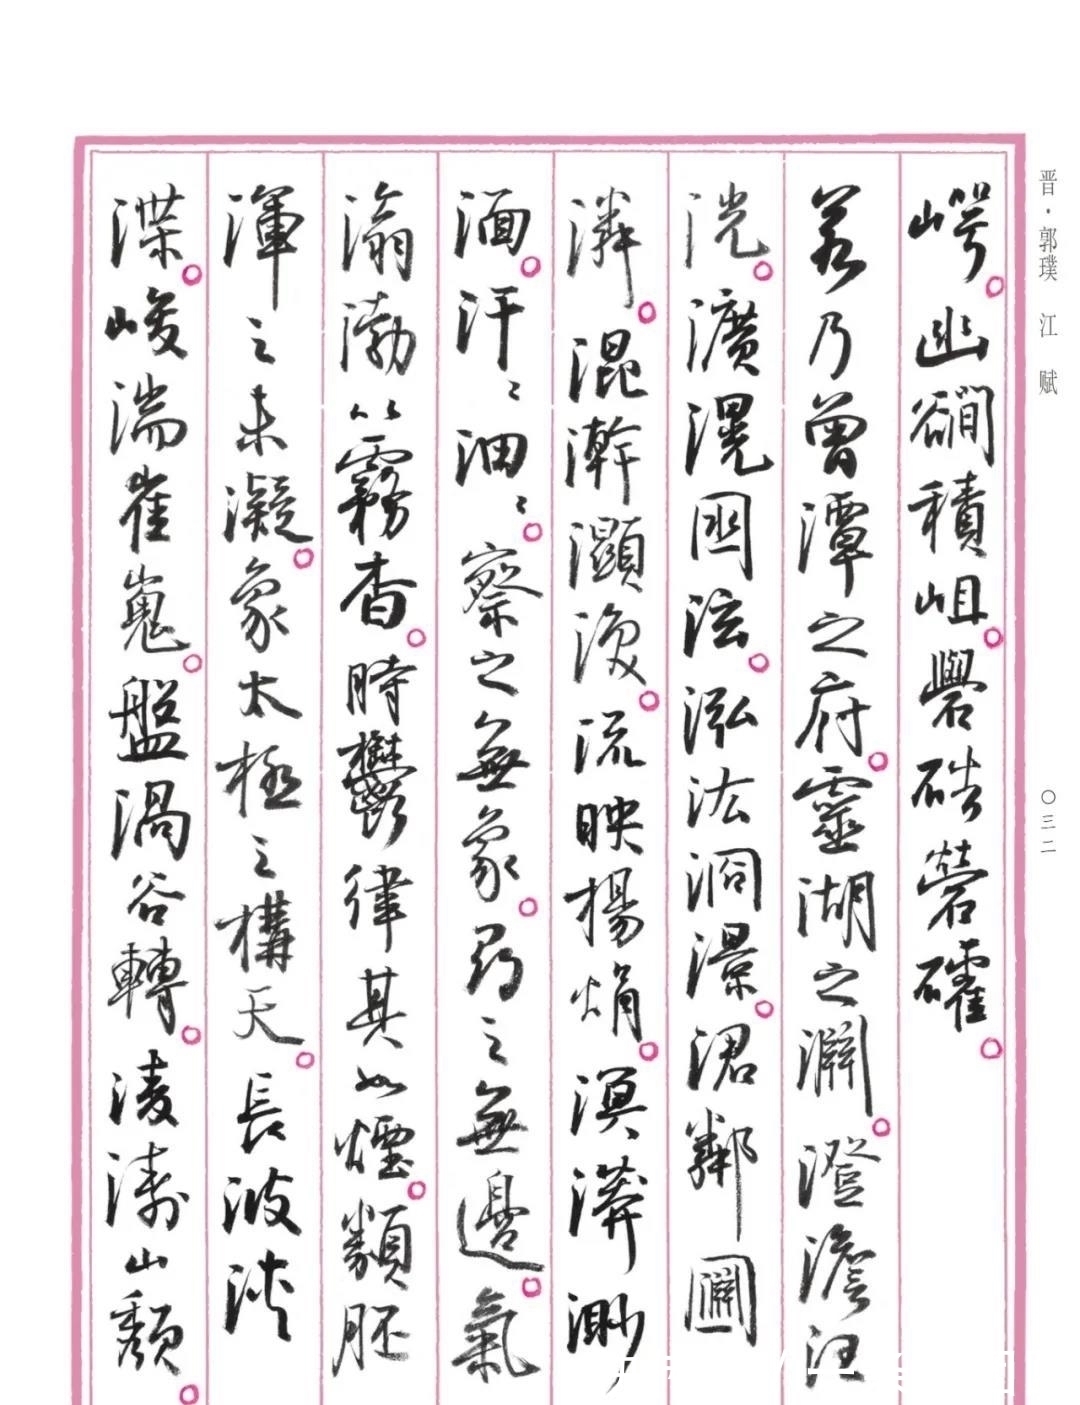 晋·郭璞 江赋
〇三二
崿。幽積岨。礐硞礭。
若乃曾潭之府。靈湖之淵。澄澹汪
洸。瀇滉囦泫。泓汯浻澋。涒鄰㘤
潾。混澣灦渙。流映揚焆。溟漭渺
湎。汗〻沺〻。察之無象。尋之無邊。氣
滃渤以霧杳。時鬱律其如煙。類胚
渾之未凝。象太極之構天。長波浹
渫。峻湍崔嵬。盤渦谷轉。淩濤山頹。